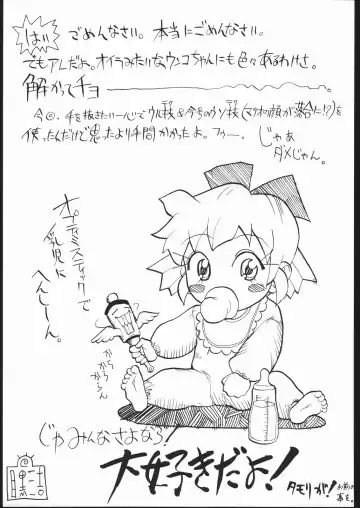 はい
ごめんなさい。本当にごめんなさい。
でもアレだよ。オイラみたいなウンコちゃんにも色々あるわけさ。
解かってチョ
今回、手を抜きたい一心でウル技&今号のウソ技(マツオの顔が落合に!?)を
使ったんだけど思ったより手間かかったよ。フゥー。
じゃぁ
ダメじゃん。
オプティミスティックで
乳児に
へんしーん。
からからからん
じゃみんなさよなら!
大好きだよ!
タモリーが!